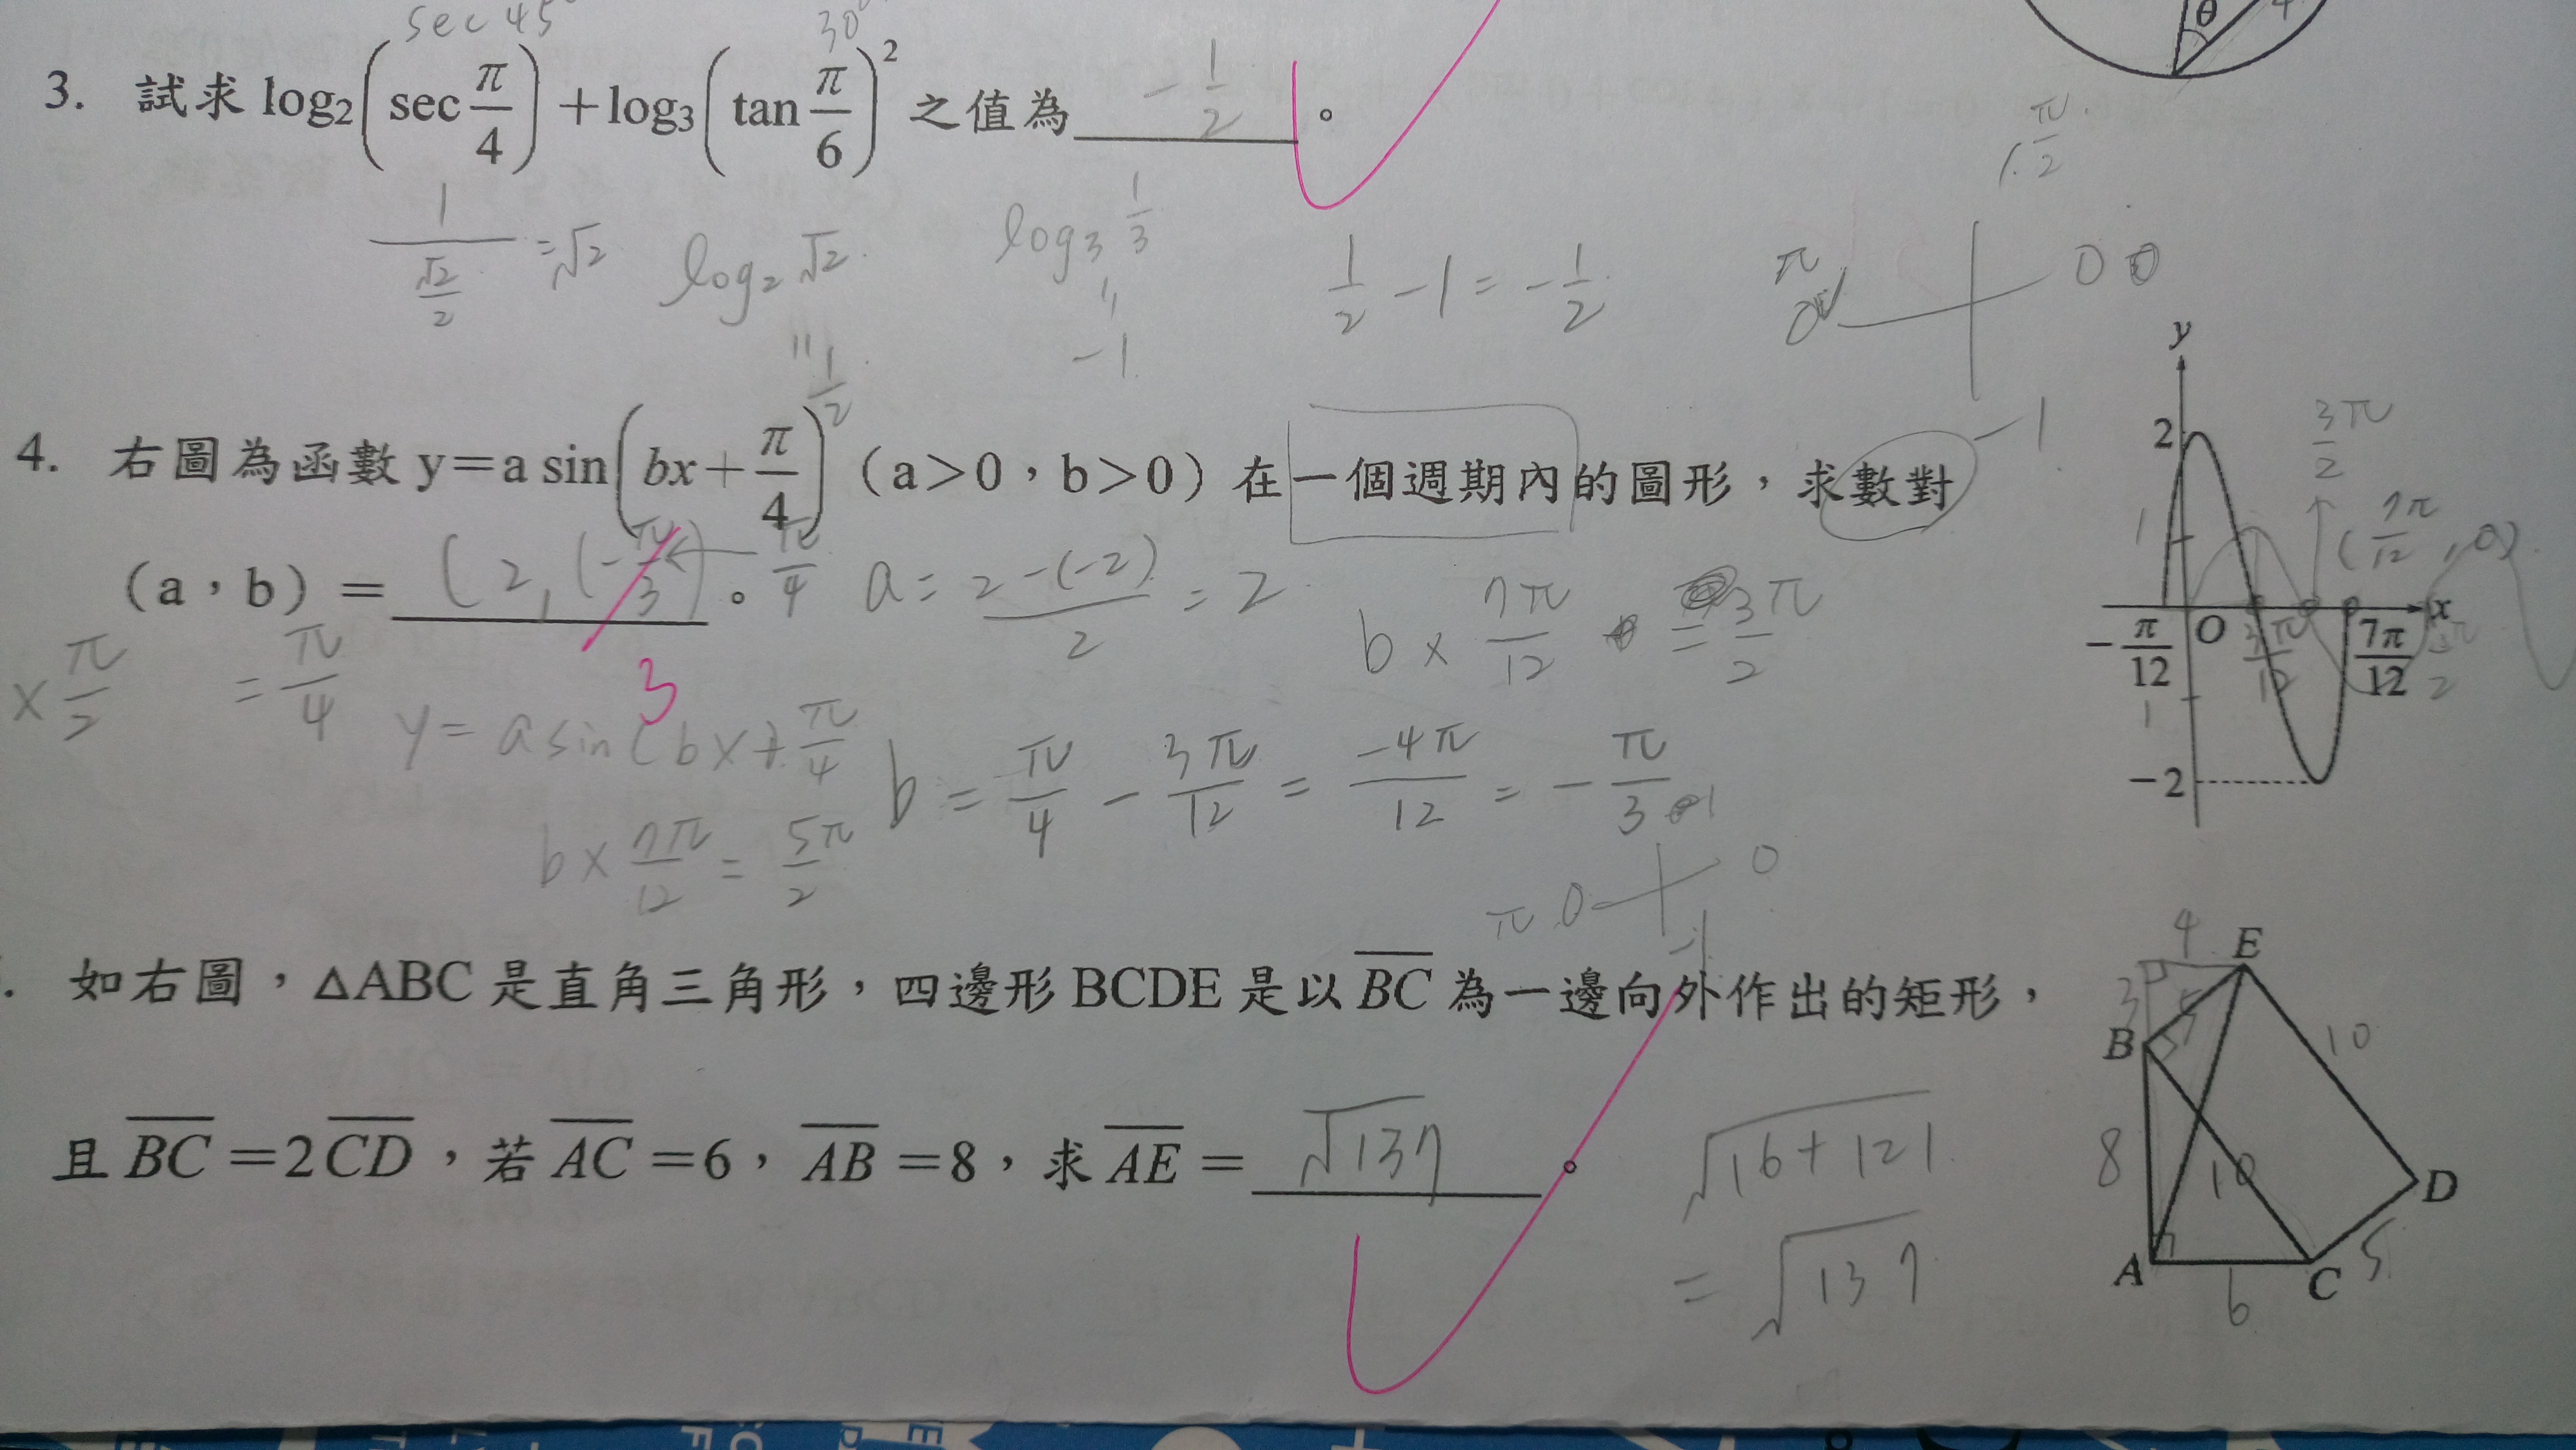 sec 45° 30°
3. 試求 log₂(sec π/4)+log₃(tan π/6)² 之值為 -1/2 。
θ
4
π/2
1/(√2/2) =√2 log₂√2 log₃ 1/3 1/2 -1 = -1/2
π 0 0
" 1/2 " -1
4. 右圖為函數 y=a sin(bx+π/4)(a>0,b>0)在一個週期內的圖形,求數對 -1
(a,b)= (2, (-π/3) 。 π/4 a= 2-(-2)/2 = 2 b× 7π/12 = 3π/2
3
×π/2 = π/4 y= a sin(bx+π/4 b = π/4 - 3π/12 = -4π/12 = -π/3
b× 7π/12 = 5π/2
π 0 0
-1
y
2
3/2 π
1
(7π/12, 0)
-π/12 O 3π/12 7π/12 x
1
-2
. 如右圖,△ABC 是直角三角形,四邊形 BCDE 是以 BC 為一邊向外作出的矩形,
且 BC =2CD,若 AC =6, AB =8,求 AE = √137 。 √16+121
= √137
4 E
3 5
B 10
8 10 D
A C 5
6